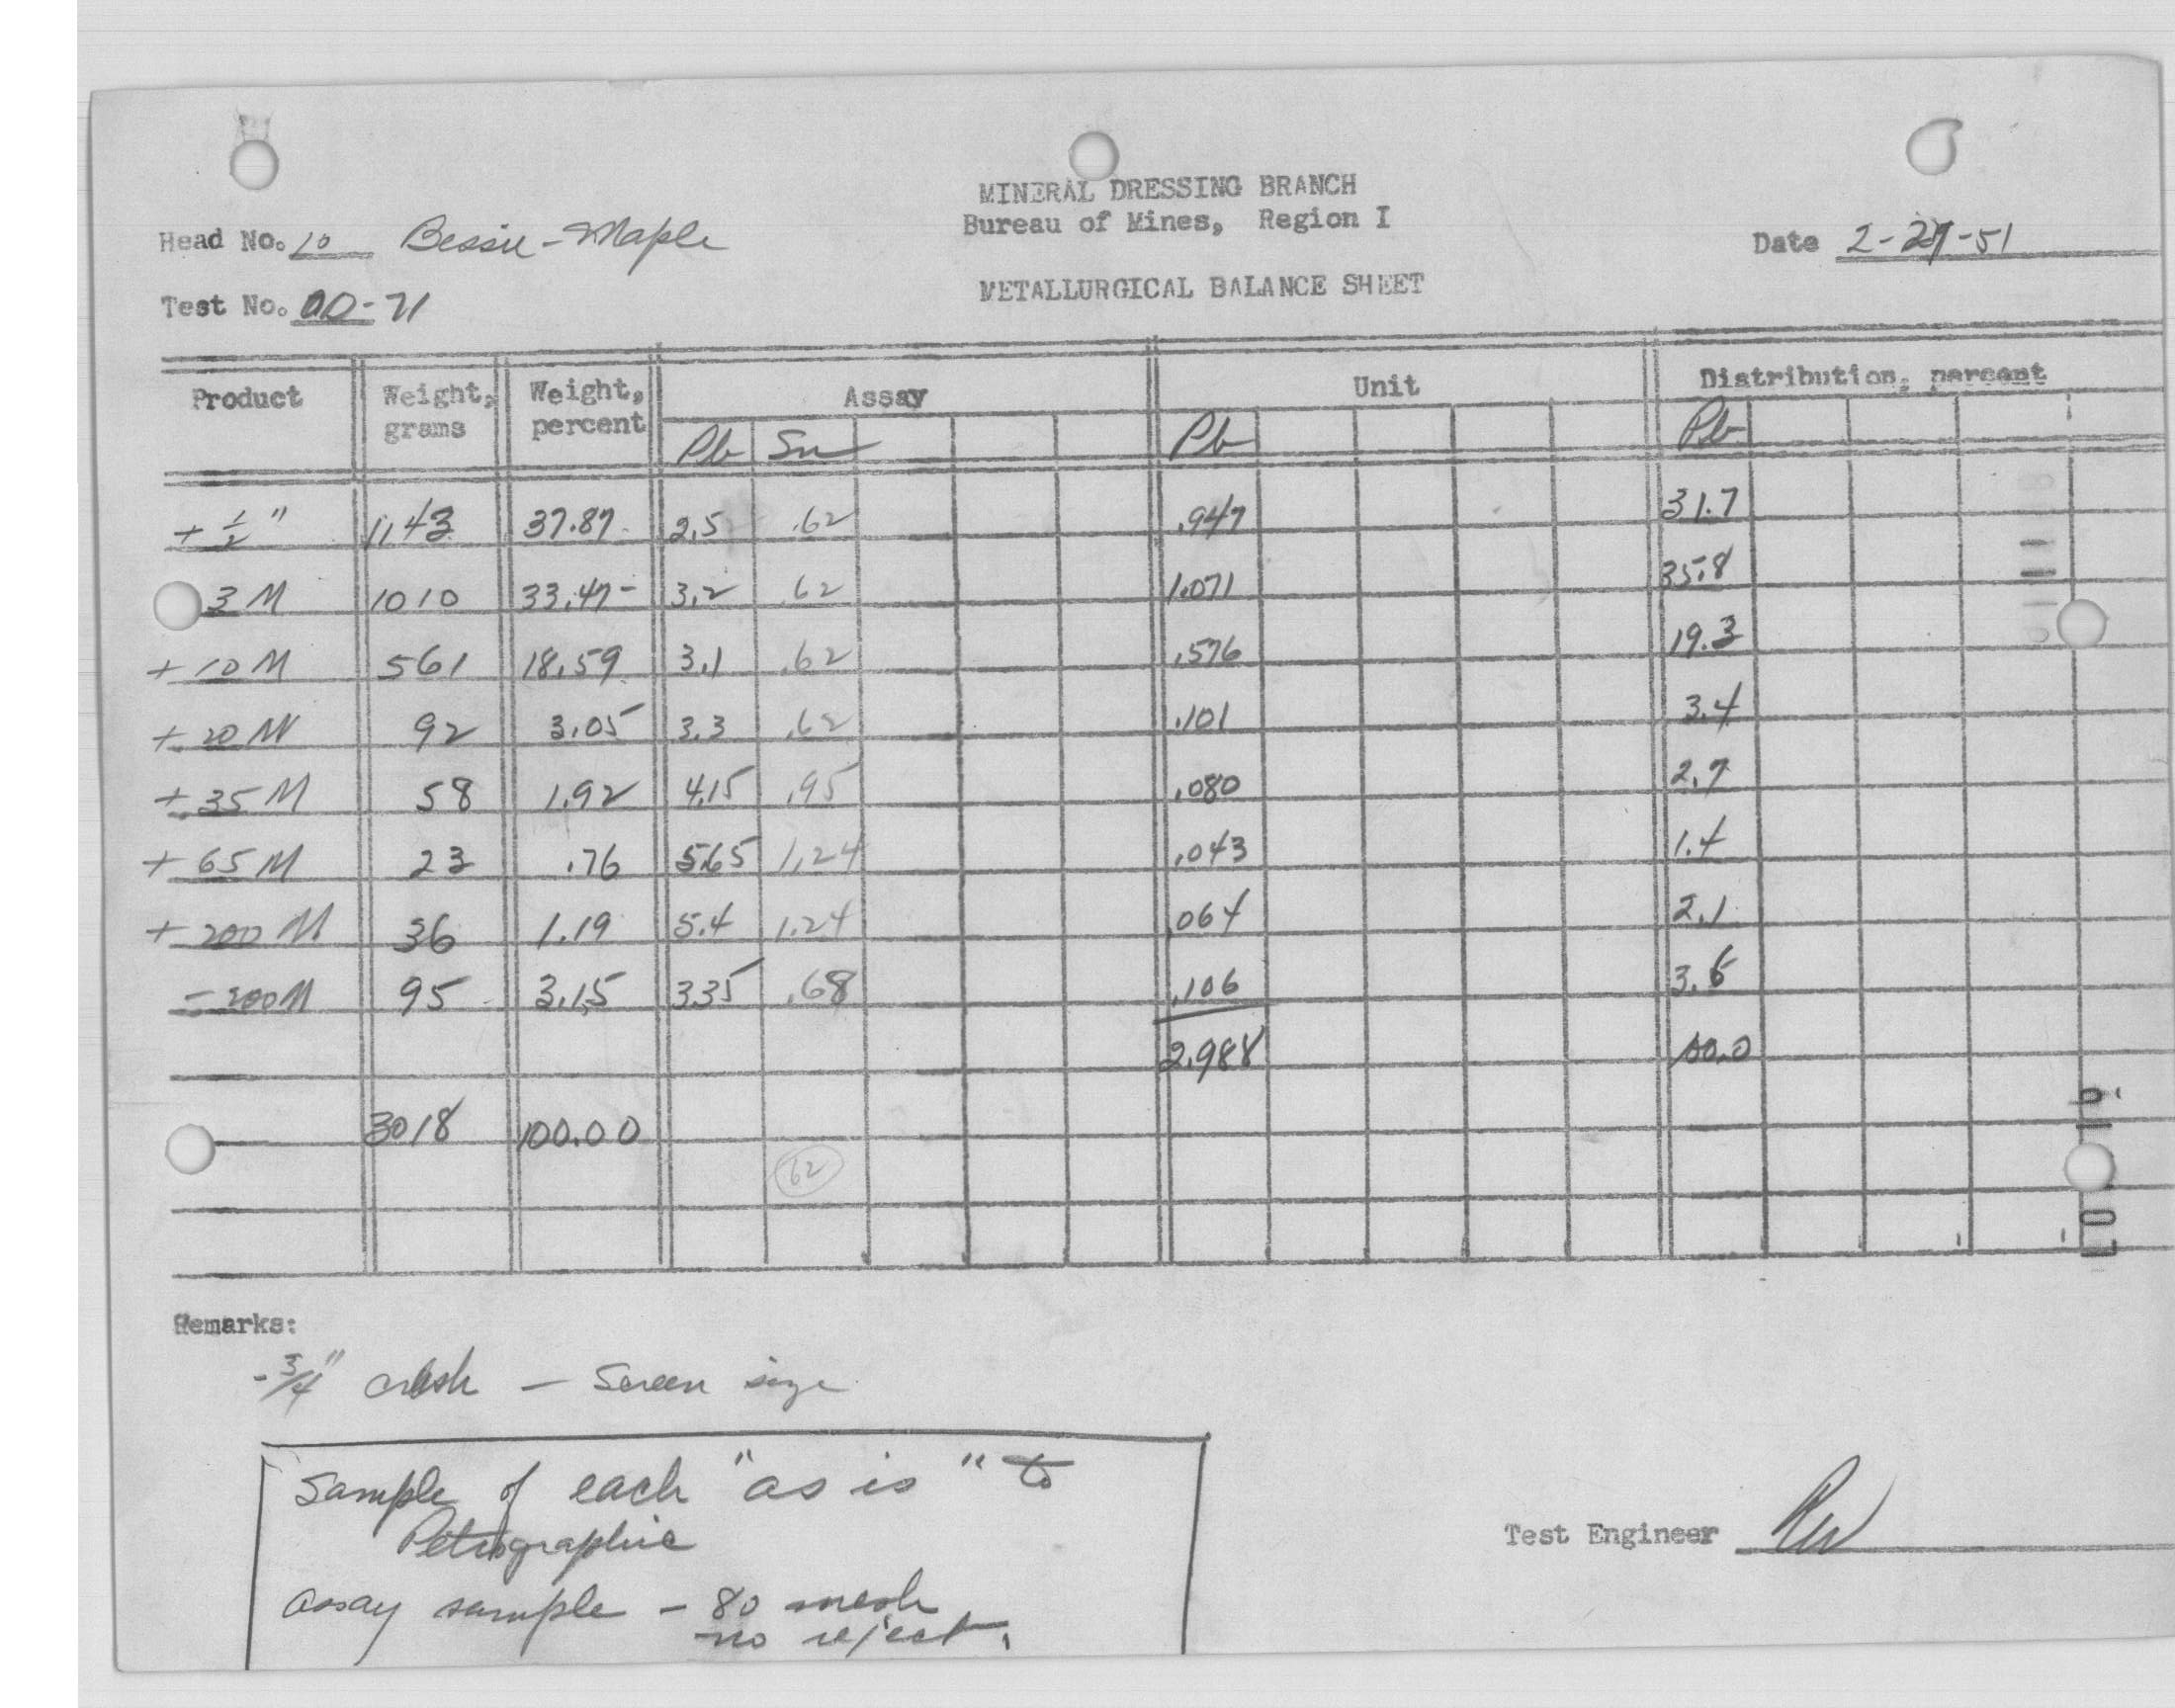 MINERAL DRESSING BRANCH
Head No. 10 Bessie-Maple Bureau of Mines, Region I Date 2-27-51
Test No. OD-71 METALLURGICAL BALANCE SHEET
Product Weight, grams Weight, percent Assay Unit Distribution, percent
Pb Sn Pb Pb
+ 1/2" 1143 37.87 2.5 .62 .947 31.7
3 M 1010 33.47 3.2 .62 1.071 35.8
+ 10 M 561 18.59 3.1 .62 .576 19.3
+ 20 M 92 3.05 3.3 .62 .101 3.4
+ 35 M 58 1.92 4.15 .95 .080 2.7
+ 65 M 23 .76 5.65 1.24 .043 1.4
+ 200 M 36 1.19 5.4 1.24 .064 2.1
- 200 M 95 3.15 3.35 .68 .106 3.6
2.988 100.0
3018 100.00
62
Remarks:
- 3/4" crush - Screen size
Sample of each "as is" to
Petrographic
assay sample - 80 mesh
no reject.
Test Engineer RW